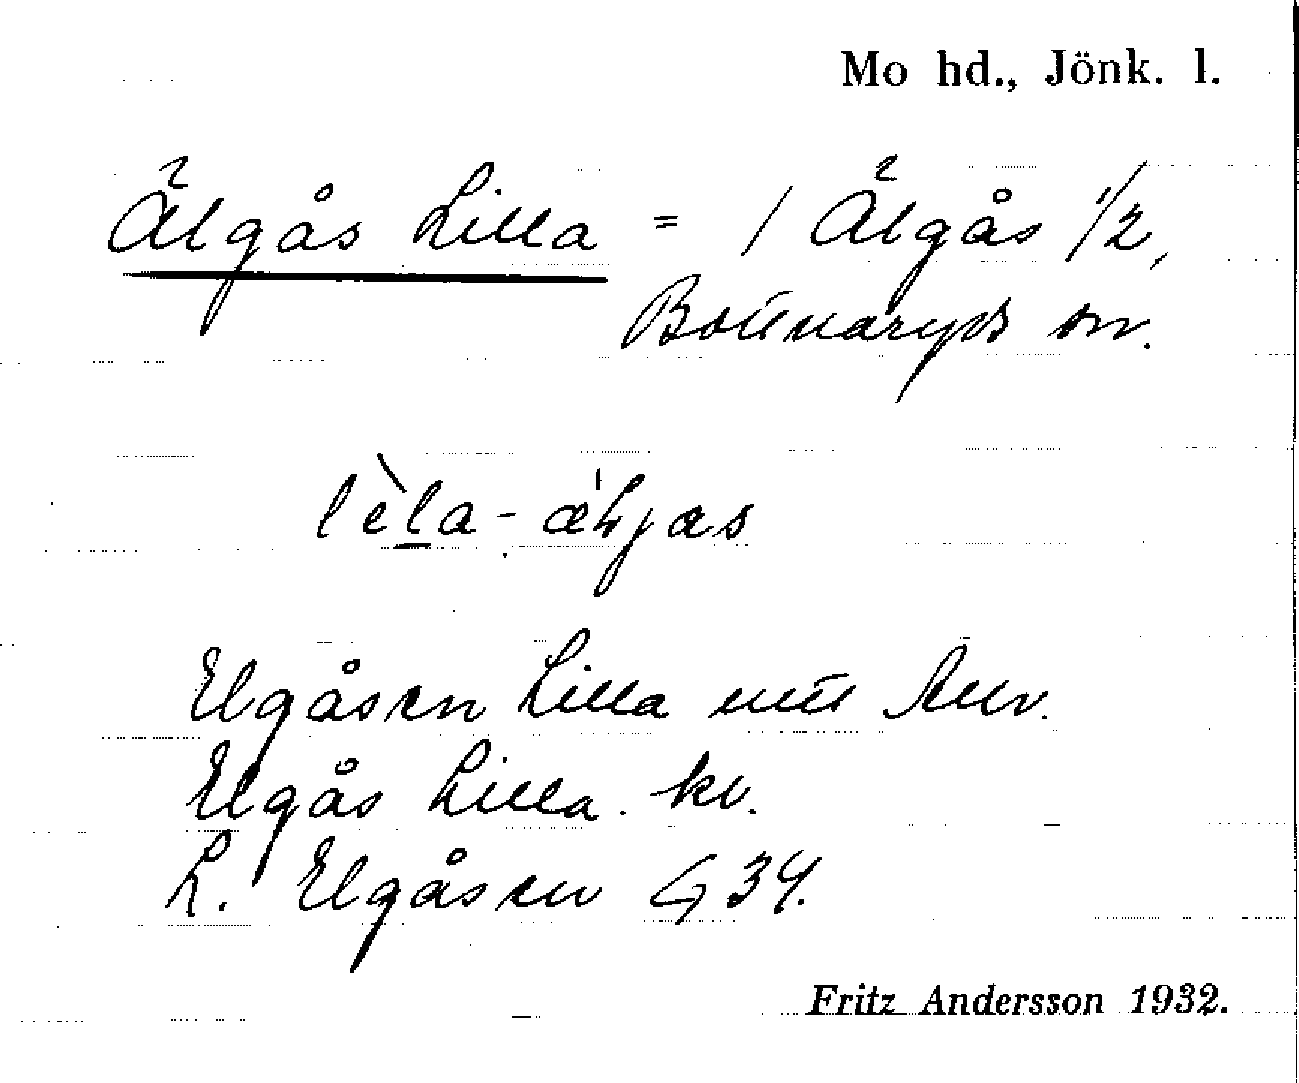 Mo hd., Jönk. l.
Älgås Lilla = 1 Älgås 1/2,
Bottnaryds sn.
lèla-æljas
Elgåsen Lilla
Elgås Lilla. kv.
L. Elgåsen G 34.
Fritz Andersson 1932.